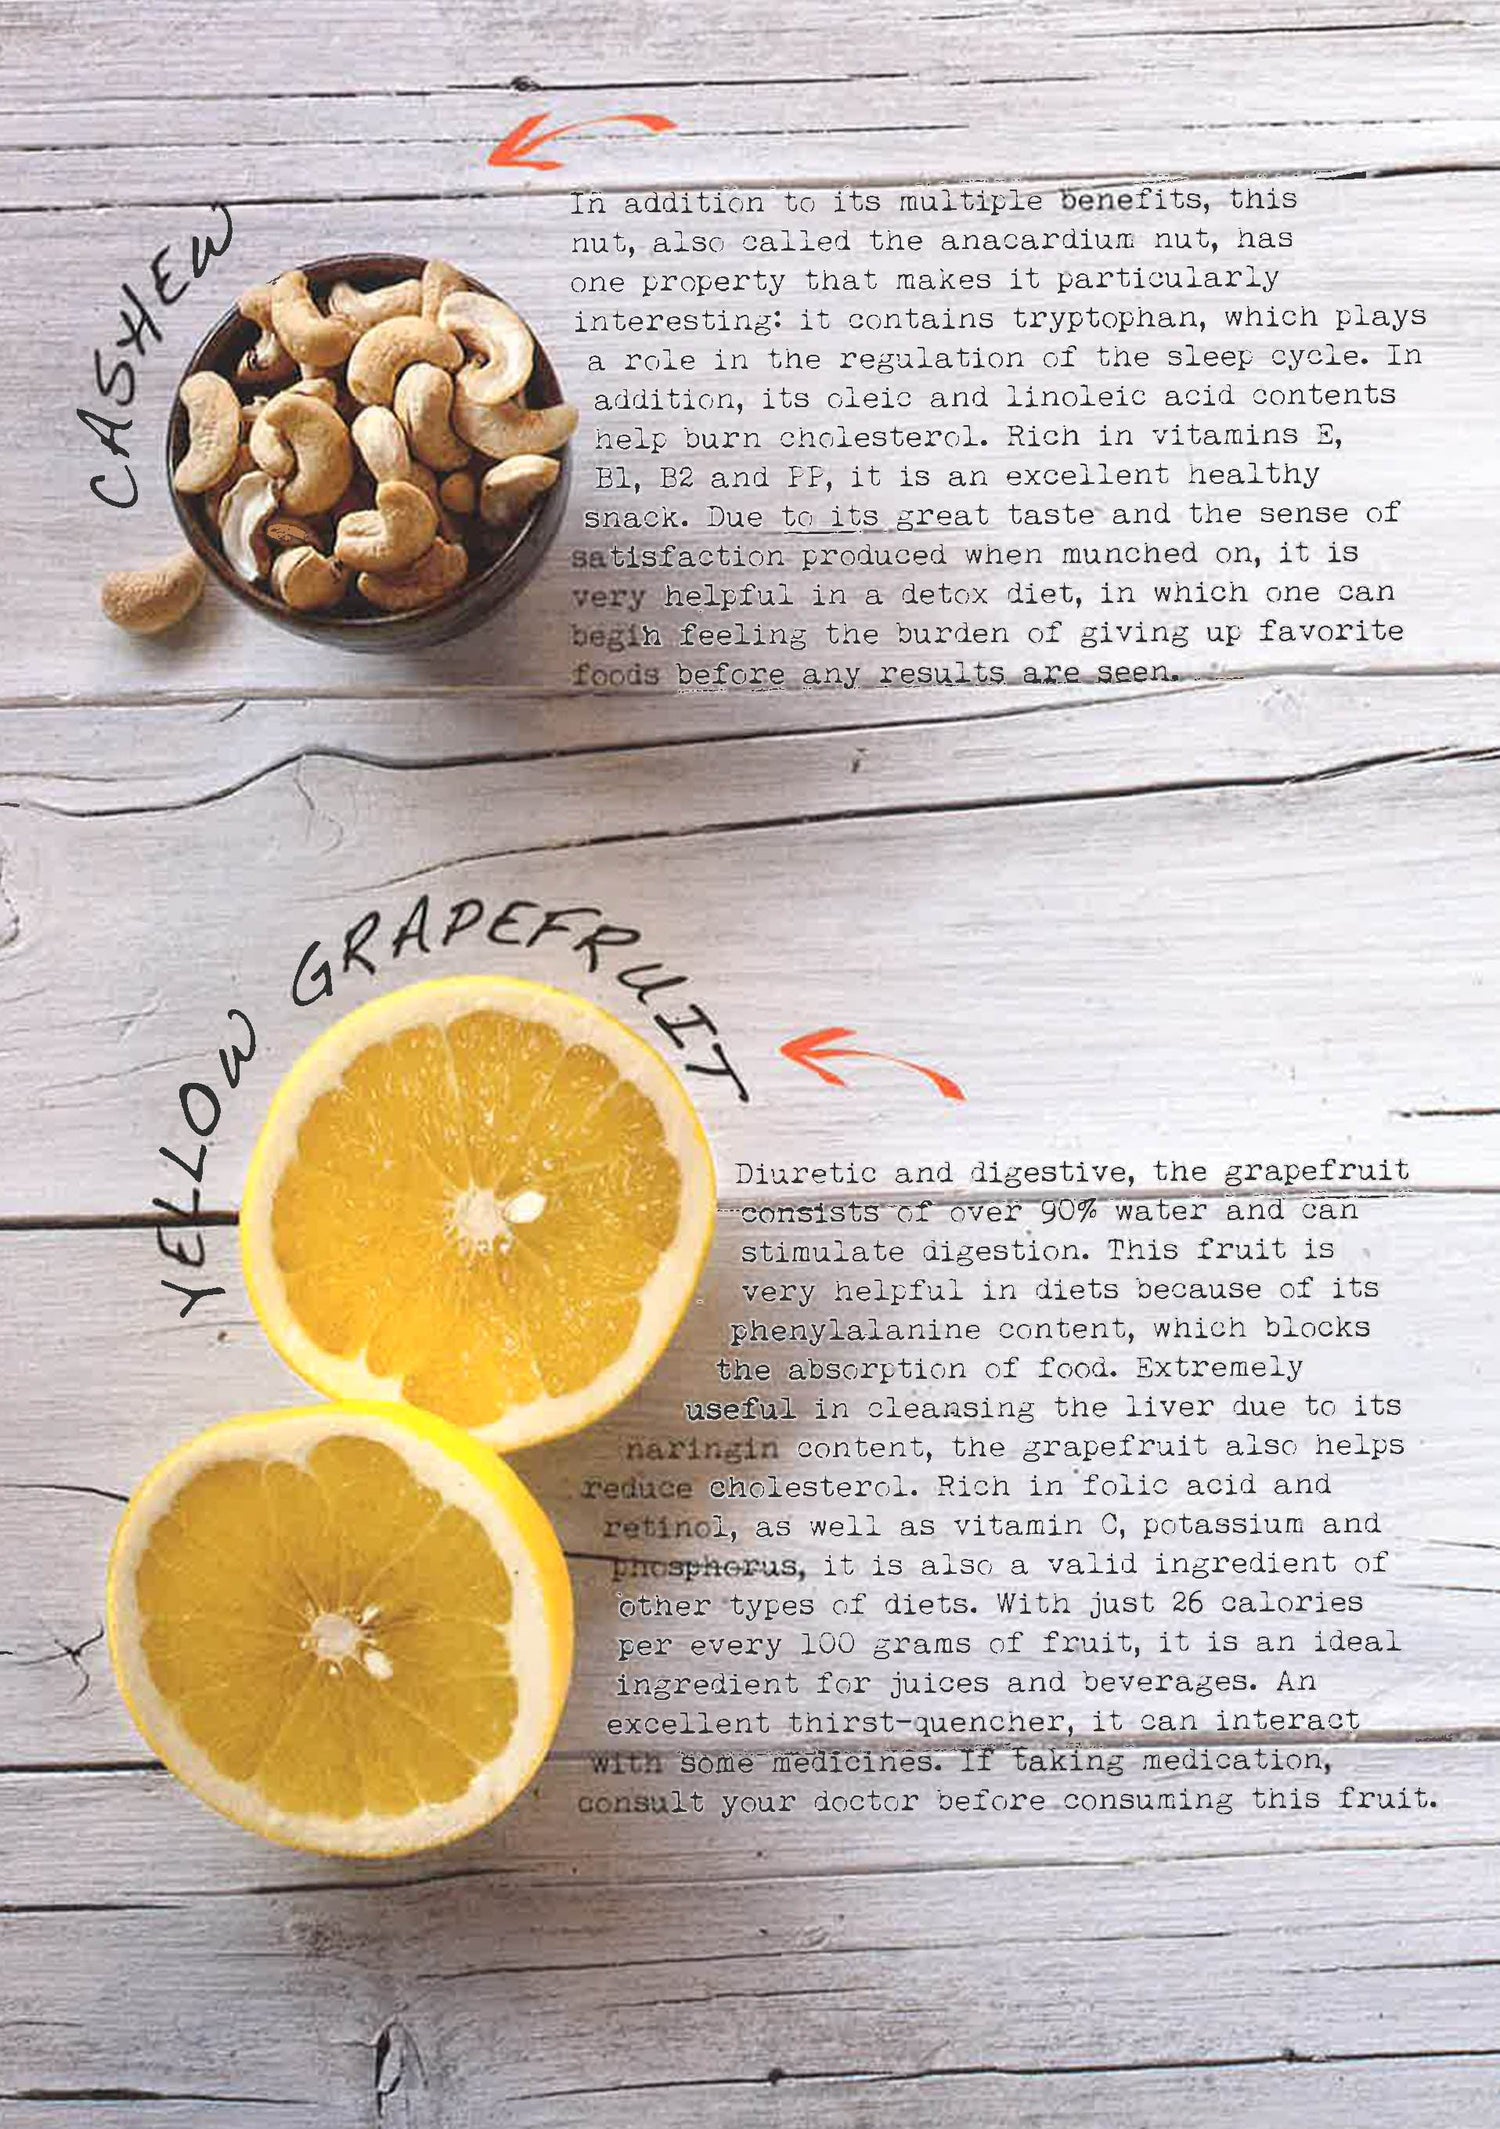 CASHEW
In addition to its multiple benefits, this
nut, also called the anacardium nut, has
one property that makes it particularly
interesting: it contains tryptophan, which plays
a role in the regulation of the sleep cycle. In
addition, its oleic and linoleic acid contents
help burn cholesterol. Rich in vitamins E,
B1, B2 and PP, it is an excellent healthy
snack. Due to its great taste and the sense of
satisfaction produced when munched on, it is
very helpful in a detox diet, in which one can
begin feeling the burden of giving up favorite
foods before any results are seen.
YELLOW GRAPEFRUIT
Diuretic and digestive, the grapefruit
consists of over 90% water and can
stimulate digestion. This fruit is
very helpful in diets because of its
phenylalanine content, which blocks
the absorption of food. Extremely
useful in cleansing the liver due to its
naringin content, the grapefruit also helps
reduce cholesterol. Rich in folic acid and
retinol, as well as vitamin C, potassium and
phosphorus, it is also a valid ingredient of
other types of diets. With just 26 calories
per every 100 grams of fruit, it is an ideal
ingredient for juices and beverages. An
excellent thirst-quencher, it can interact
with some medicines. If taking medication,
consult your doctor before consuming this fruit.